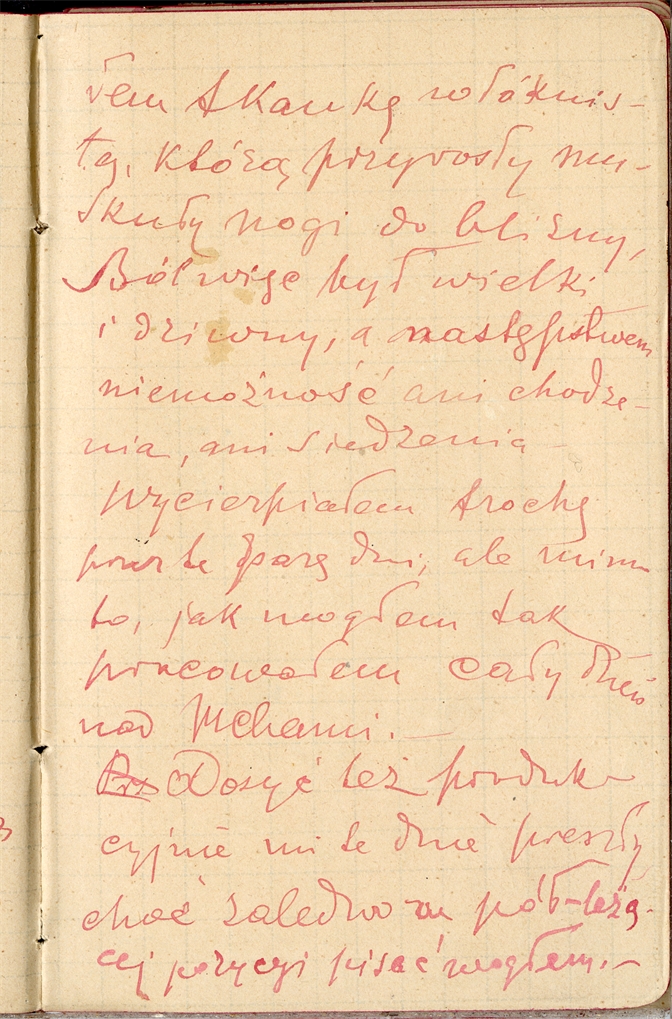 łem tkankę włóknis-
tą, którą przyrosły mu-
skuły nogi do blizny,
Ból więc był wielki
i dziwny, a następstwem
niemożność ani chodze-
nia, ani siedzenia –
Wycierpiałem trochę
przez te parę dni, ale mimo
to, jak mogłem tak
pracowałem cały dzień
nad Mchami. –
Dosyć też produk-
cyjnie mi te dnie przeszły
choć zaledwo w pół-leżą-
cej pozycyi pisać mogłem. –